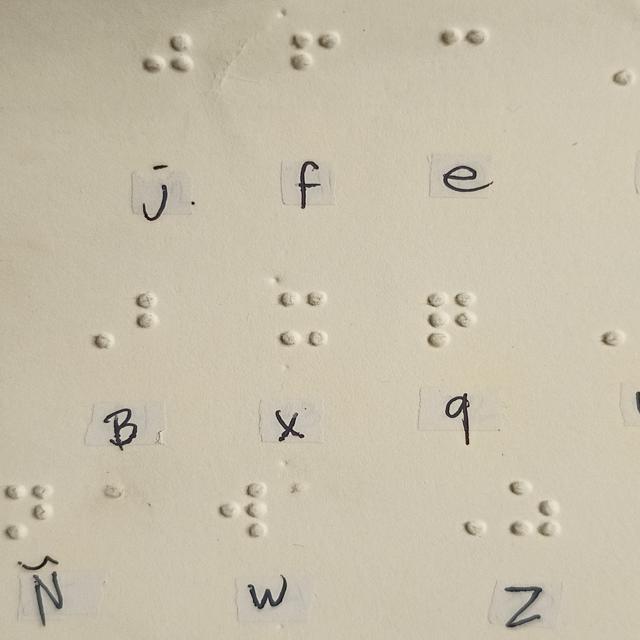 j f e
B x q
Ñ w Z